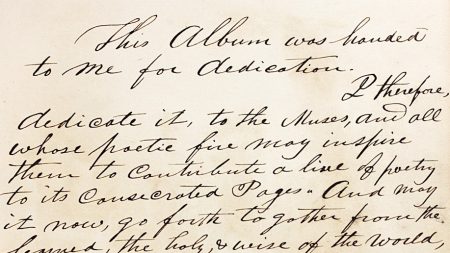 This Album was handed
to me for dedication.
I therefore,
dedicate it, to the Muses, and all
whose poetic fire may inspire
them to contribute a line of poetry
to its consecrated Pages. And may
it now, go forth to gather from the
learned, the holy, & wise of the world,